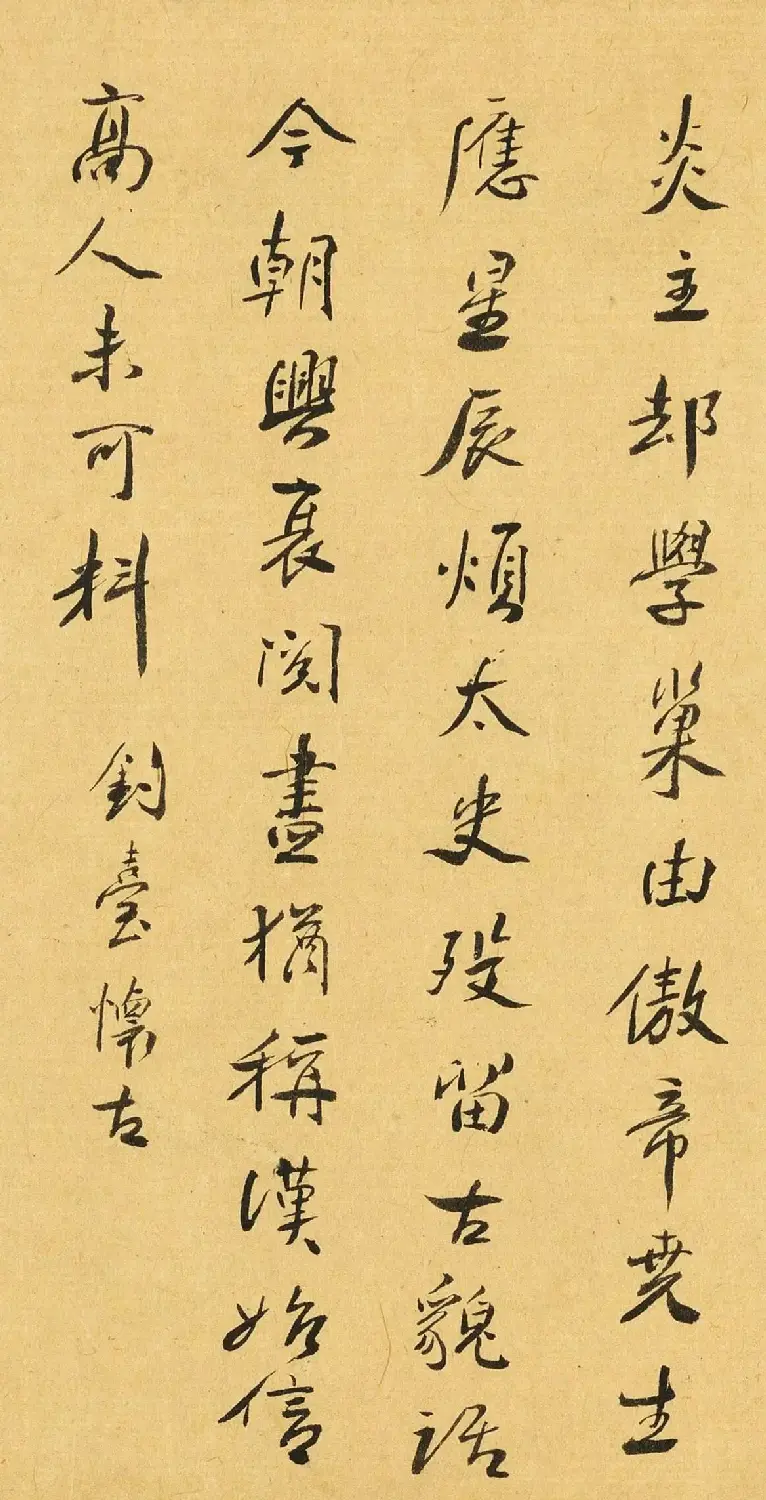 炎主却學巢由傲帝堯生
應星辰煩太史歿留古貌話
今朝興衰閱盡猶稱漢始信
高人未可料 釣臺懷古